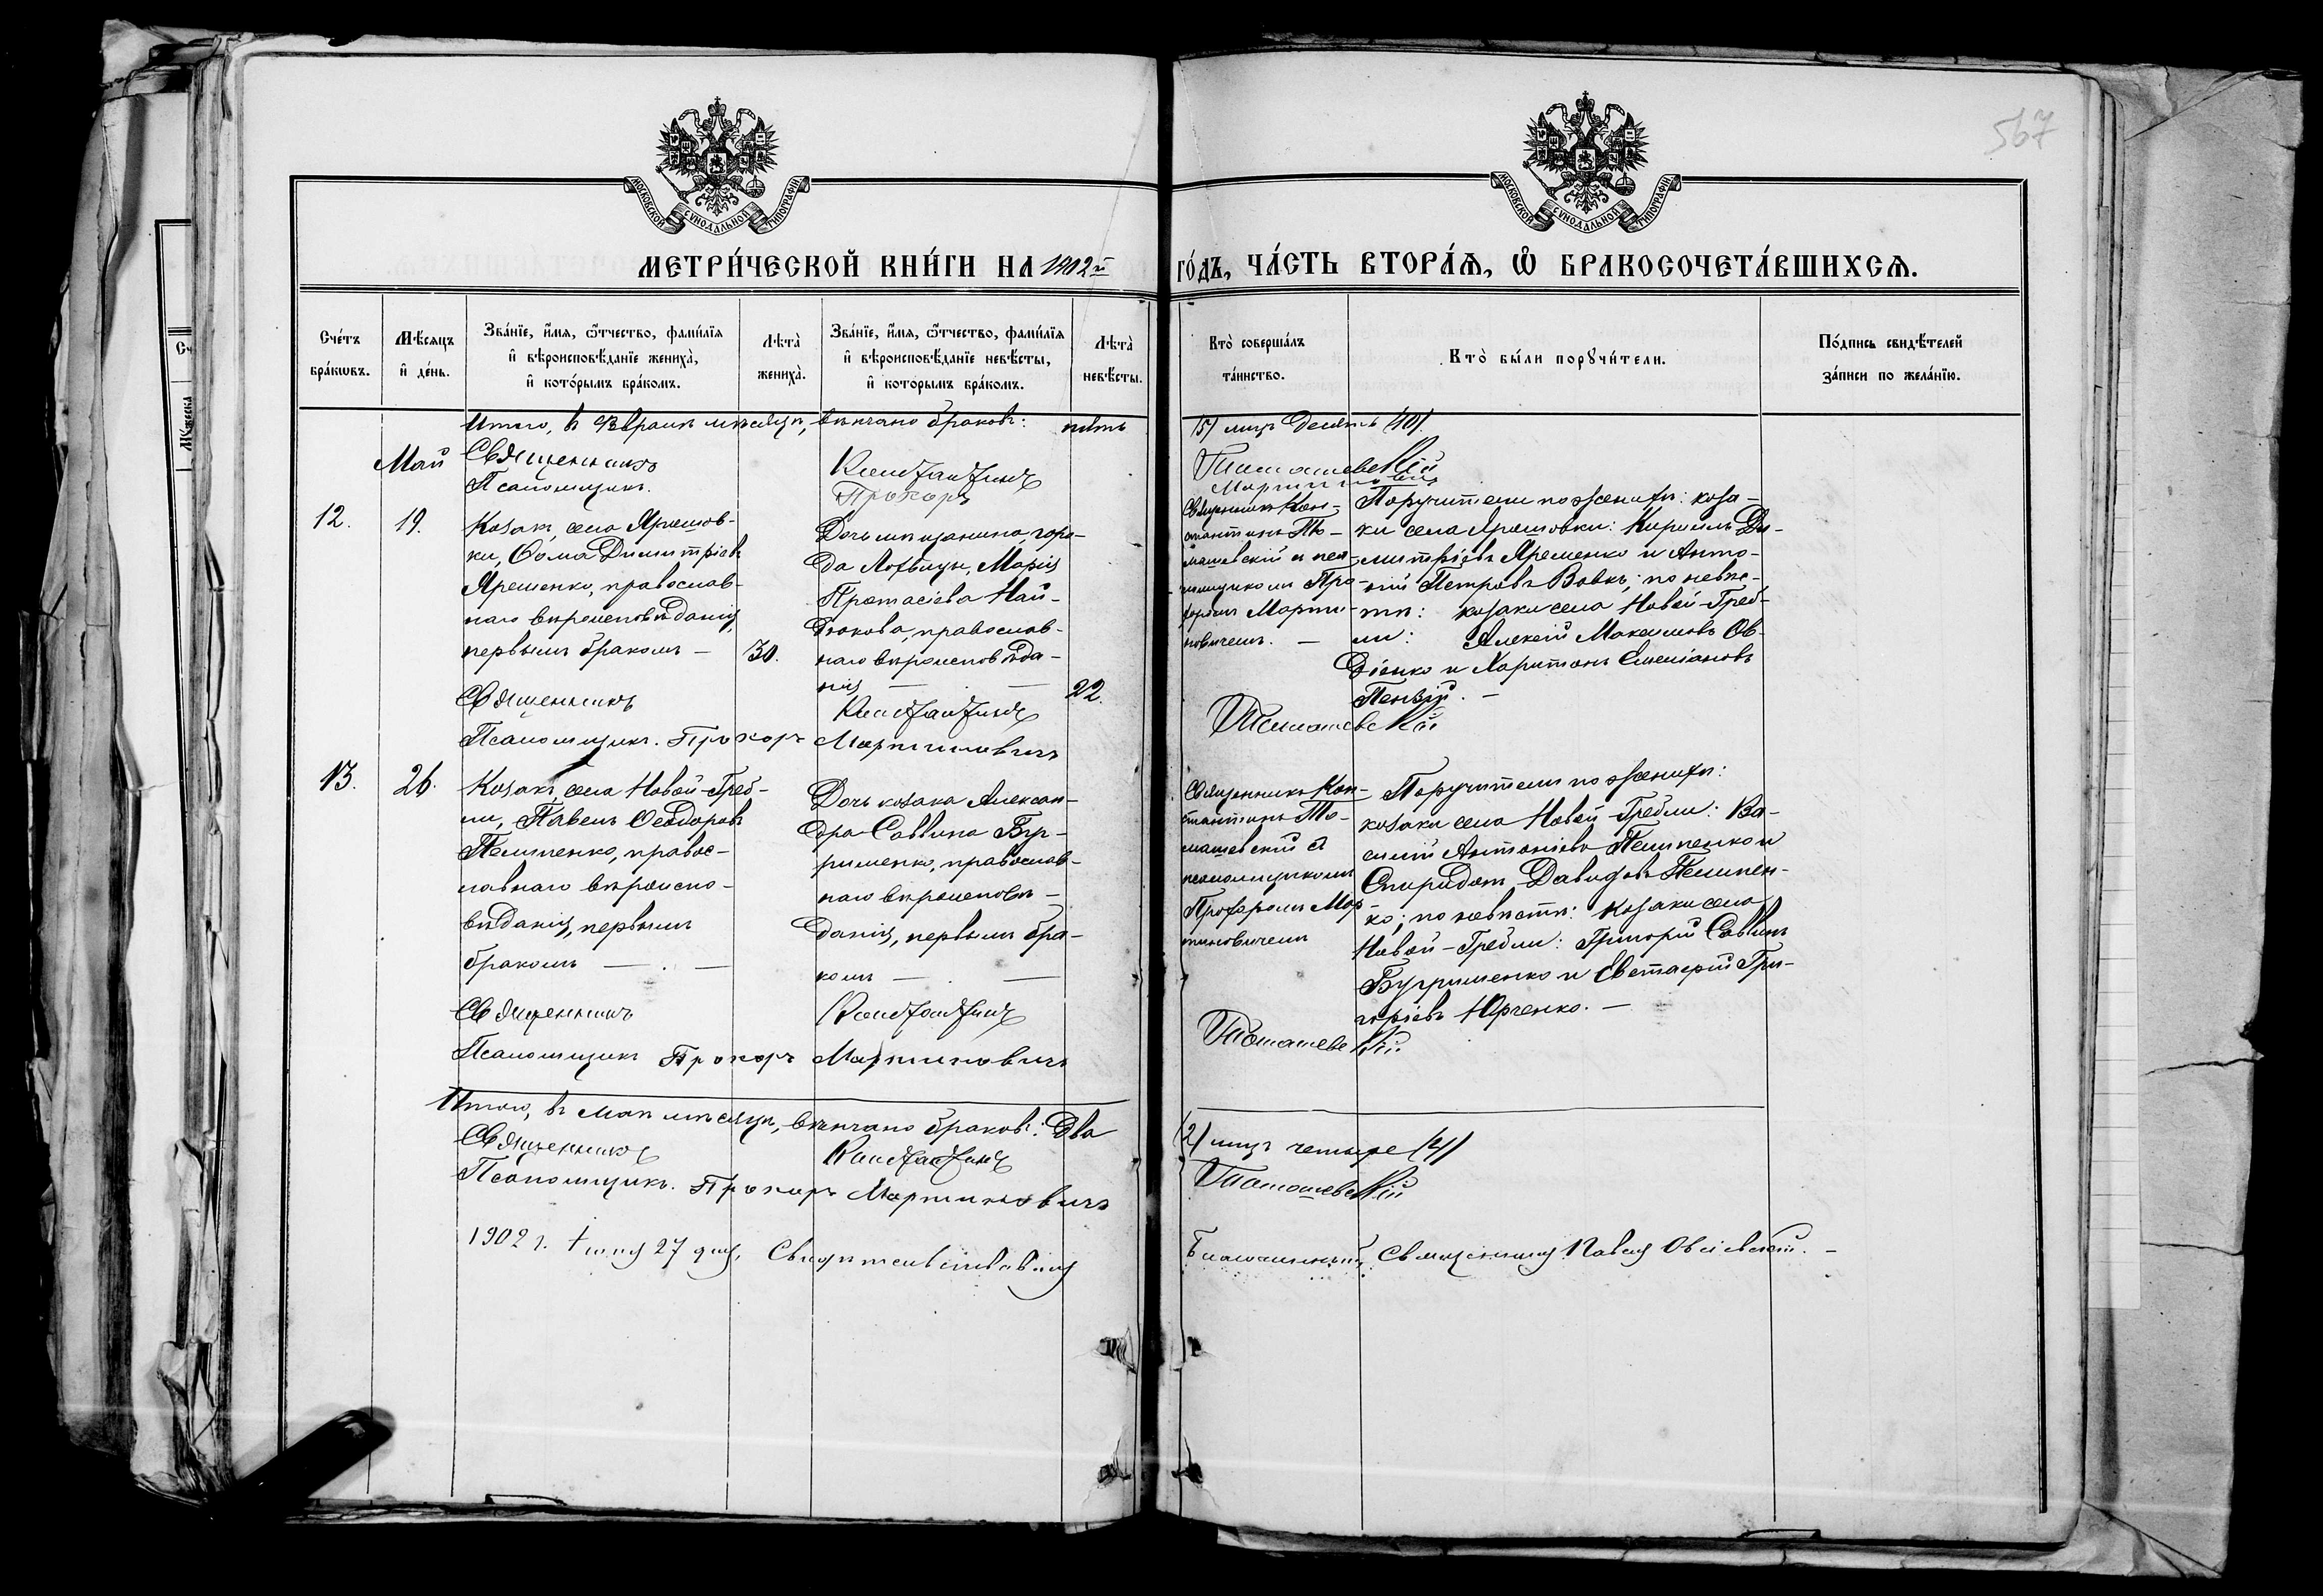 567
МОСКОВСКОЙ СѴНОДАЛЬНОЙ ТИПОГРАФІИ
МОСКОВСКОЙ СѴНОДАЛЬНОЙ ТИПОГРАФІИ
МЕТРИ́ЧЕСКОЙ КНИ́ГИ НА 1902й
ГО́ДЪ, ЧА́СТЬ ВТОРА́Я, Ѡ БРАКОСОЧЕТА́ВШИХСЯ.
Сче́тъ бра́кѡвъ.
Мѣ́сяцъ и де́нь.
Зва́нїе, и́мя, ѻ́тчество, фами́лїя
и вѣроисповѣ́данїе жениха̀,
и кото́рымъ бра́комъ.
Лѣта̀ жениха̀.
Зва́нїе, и́мя, ѻ́тчество, фами́лїя
и вѣроисповѣ́данїе невѣ́сты,
и которымъ бра́комъ.
Лѣта̀ невѣ́сты.
Кто̀ совершáлъ
та́инство.
Кто̀ бы́ли порꙋчи́тели.
По́дпись свидѣ́телей
за́писи по жела́нїю.
Итого, въ Февралѣ мѣсяцѣ, вѣнчано браковъ: пять
/5/ лицъ десять /10/.
Май
Священникъ Константинъ Томашевскій
Псаломщикъ. Прохоръ Мартиновичъ
12.
19.
Козакъ, села Ярошов-
ки, Ѳома Димитріевъ
Яременко, православ-
наго вѣроисповѣданія,
первымъ бракомъ —
30.
Дочь мѣщанина, горо-
да Лохвицы, Марія
Протасіева Най-
дюкова, православ-
наго вѣроисповѣда-
нія — . —
22.
Священникъ Кон-
стантинъ То-
машевскій и пса-
ломщикомъ Про-
хоромъ Марти-
новичемъ. —
Поручители по женихѣ: коза-
ки села Ярошовки: Кириллъ Ди-
митріевъ Яременко и Анто-
ній Петровъ Вовкъ; по невѣс-
тѣ: козаки села Новой-Греб-
ли: Алексій Максимовъ Ов-
діенко и Харитонъ Емеліановъ
Пензій. —
Священникъ Константинъ Томашевскій
Псаломщикъ. Прохоръ Мартиновичъ
13.
26.
Козакъ, села Новой-Греб-
ли, Павелъ Ѳеодоровъ
Пелипенко, правос-
лавнаго вѣроиспо-
вѣданія, первымъ
бракомъ — . —
Дочь козака Алексан-
дра Саввина Буг-
рименко, православ-
наго вѣроисповѣ-
данія, первымъ бра-
комъ — . —
Священникъ Кон-
стантинъ То-
машевскій съ
псаломщикомъ
Прохоромъ Мар-
тиновичемъ
Поручители по женихѣ:
козаки села Новой-Гребли: Ва-
силій Антоніевъ Пелипенко и
Спиридонъ Давидовъ Пелипен-
ко; по невѣстѣ: козаки села
Новой-Гребли: Григорій Саввинъ
Бугрименко и Евстафій Гри-
горіевъ Юрченко. —
Священникъ Константинъ Томашевскій
Псаломщикъ Прохоръ Мартиновичъ
Итого, въ Маѣ мѣсяцѣ, вѣнчано браковъ: Два
/2/ лицъ четыре /4/
Священникъ Константинъ Томашевскій
Псаломщикъ. Прохоръ Мартиновичъ
1902 г. 27 дня, Свидѣтельствовалъ
Благочинный Священникъ Павелъ